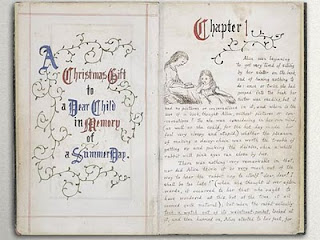 A
Christmas Gift
to
a Dear Child
in Memory
of
a Summer Day.
Chapter I
Alice was beginning
to get very tired of sitting
by her sister on the bank,
and of having nothing to
do: once or twice she had
peeped into the book her
sister was reading, but it
had no pictures or conversations in it, and where is the
use of a book, thought Alice, without pictures or
conversations? So she was considering in her own mind,
(as well as she could, for the hot day made her
feel very sleepy and stupid,) whether the pleasure
of making a daisy-chain was worth the trouble of
getting up and picking the daisies, when a white
rabbit with pink eyes ran close by her.
There was nothing very remarkable in that,
nor did Alice think it so very much out of the
way to hear the rabbit say to itself "dear, dear! I
shall be too late!" (when she thought it over
afterwards, it occurred to her that she ought to
have wondered at this, but at the time it all
seemed quite natural); but when the rabbit actually
took a watch out of its waistcoat-pocket, looked at
it, and then hurried on, Alice started to her feet, for